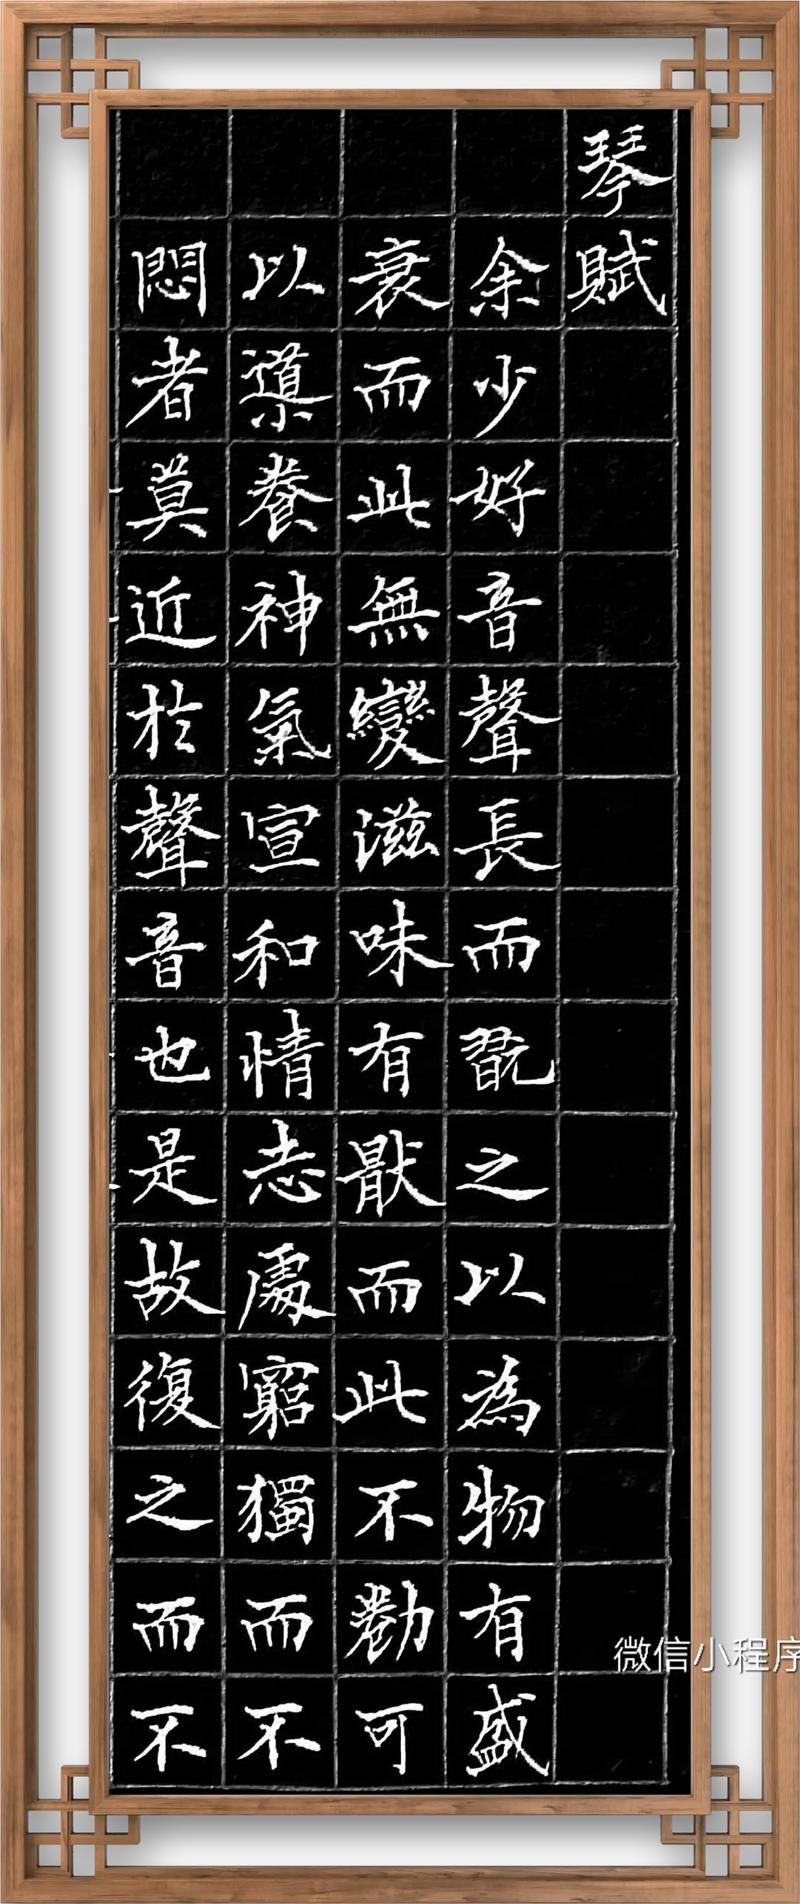 琴賦
余少好音聲長而翫之以為物有盛
衰而此無變滋味有猒而此不勌可
以導養神氣宣和情志處窮獨而不
悶者莫近於聲音也是故復之而不
微信小程序